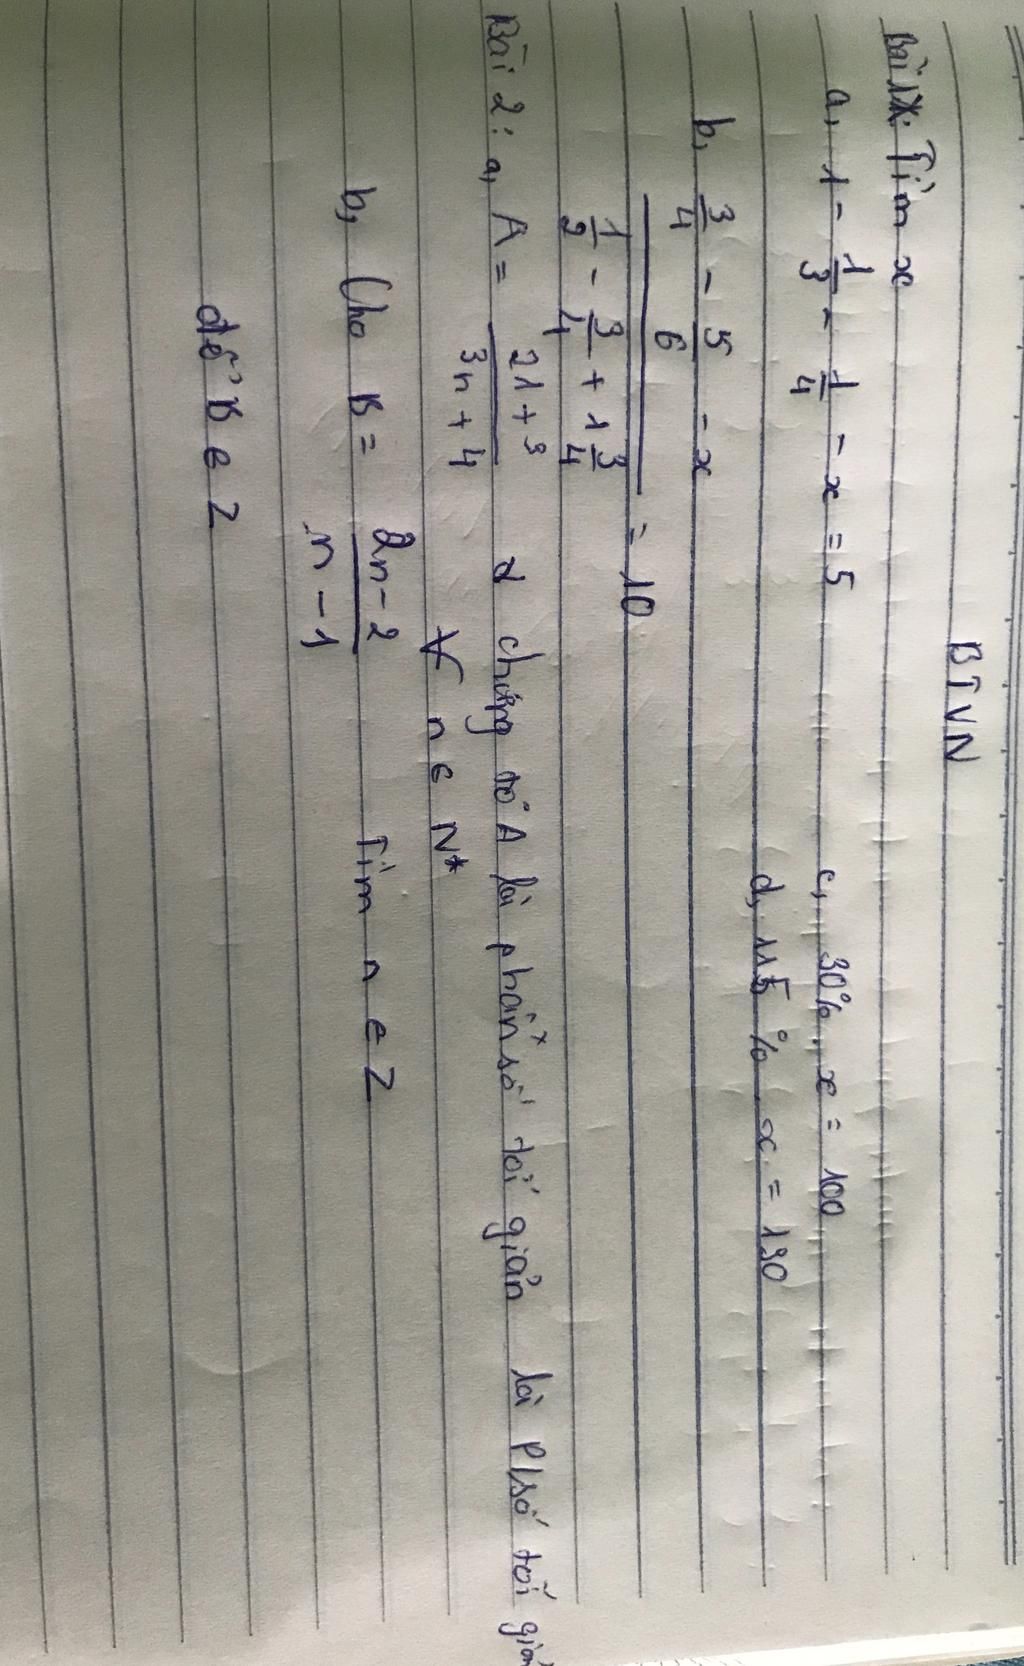 BTVN
Bài 1: Tìm x
a, 1 - 1/3 - 1/4 - x = 5
c, 30% . x = 100
d, 115% . x = 190
b, (3/4 - 5/6 - x) / (1/2 - 3/4 + 1 3/4) = 10
Bài 2: a, A = (21 + 3) / (3n + 4) chứng tỏ A là phân số tối giản là P/số tối giản
∀ n ∈ N*
b, Cho B = (2n - 2) / (n - 1) Tìm n ∈ Z
để B ∈ Z